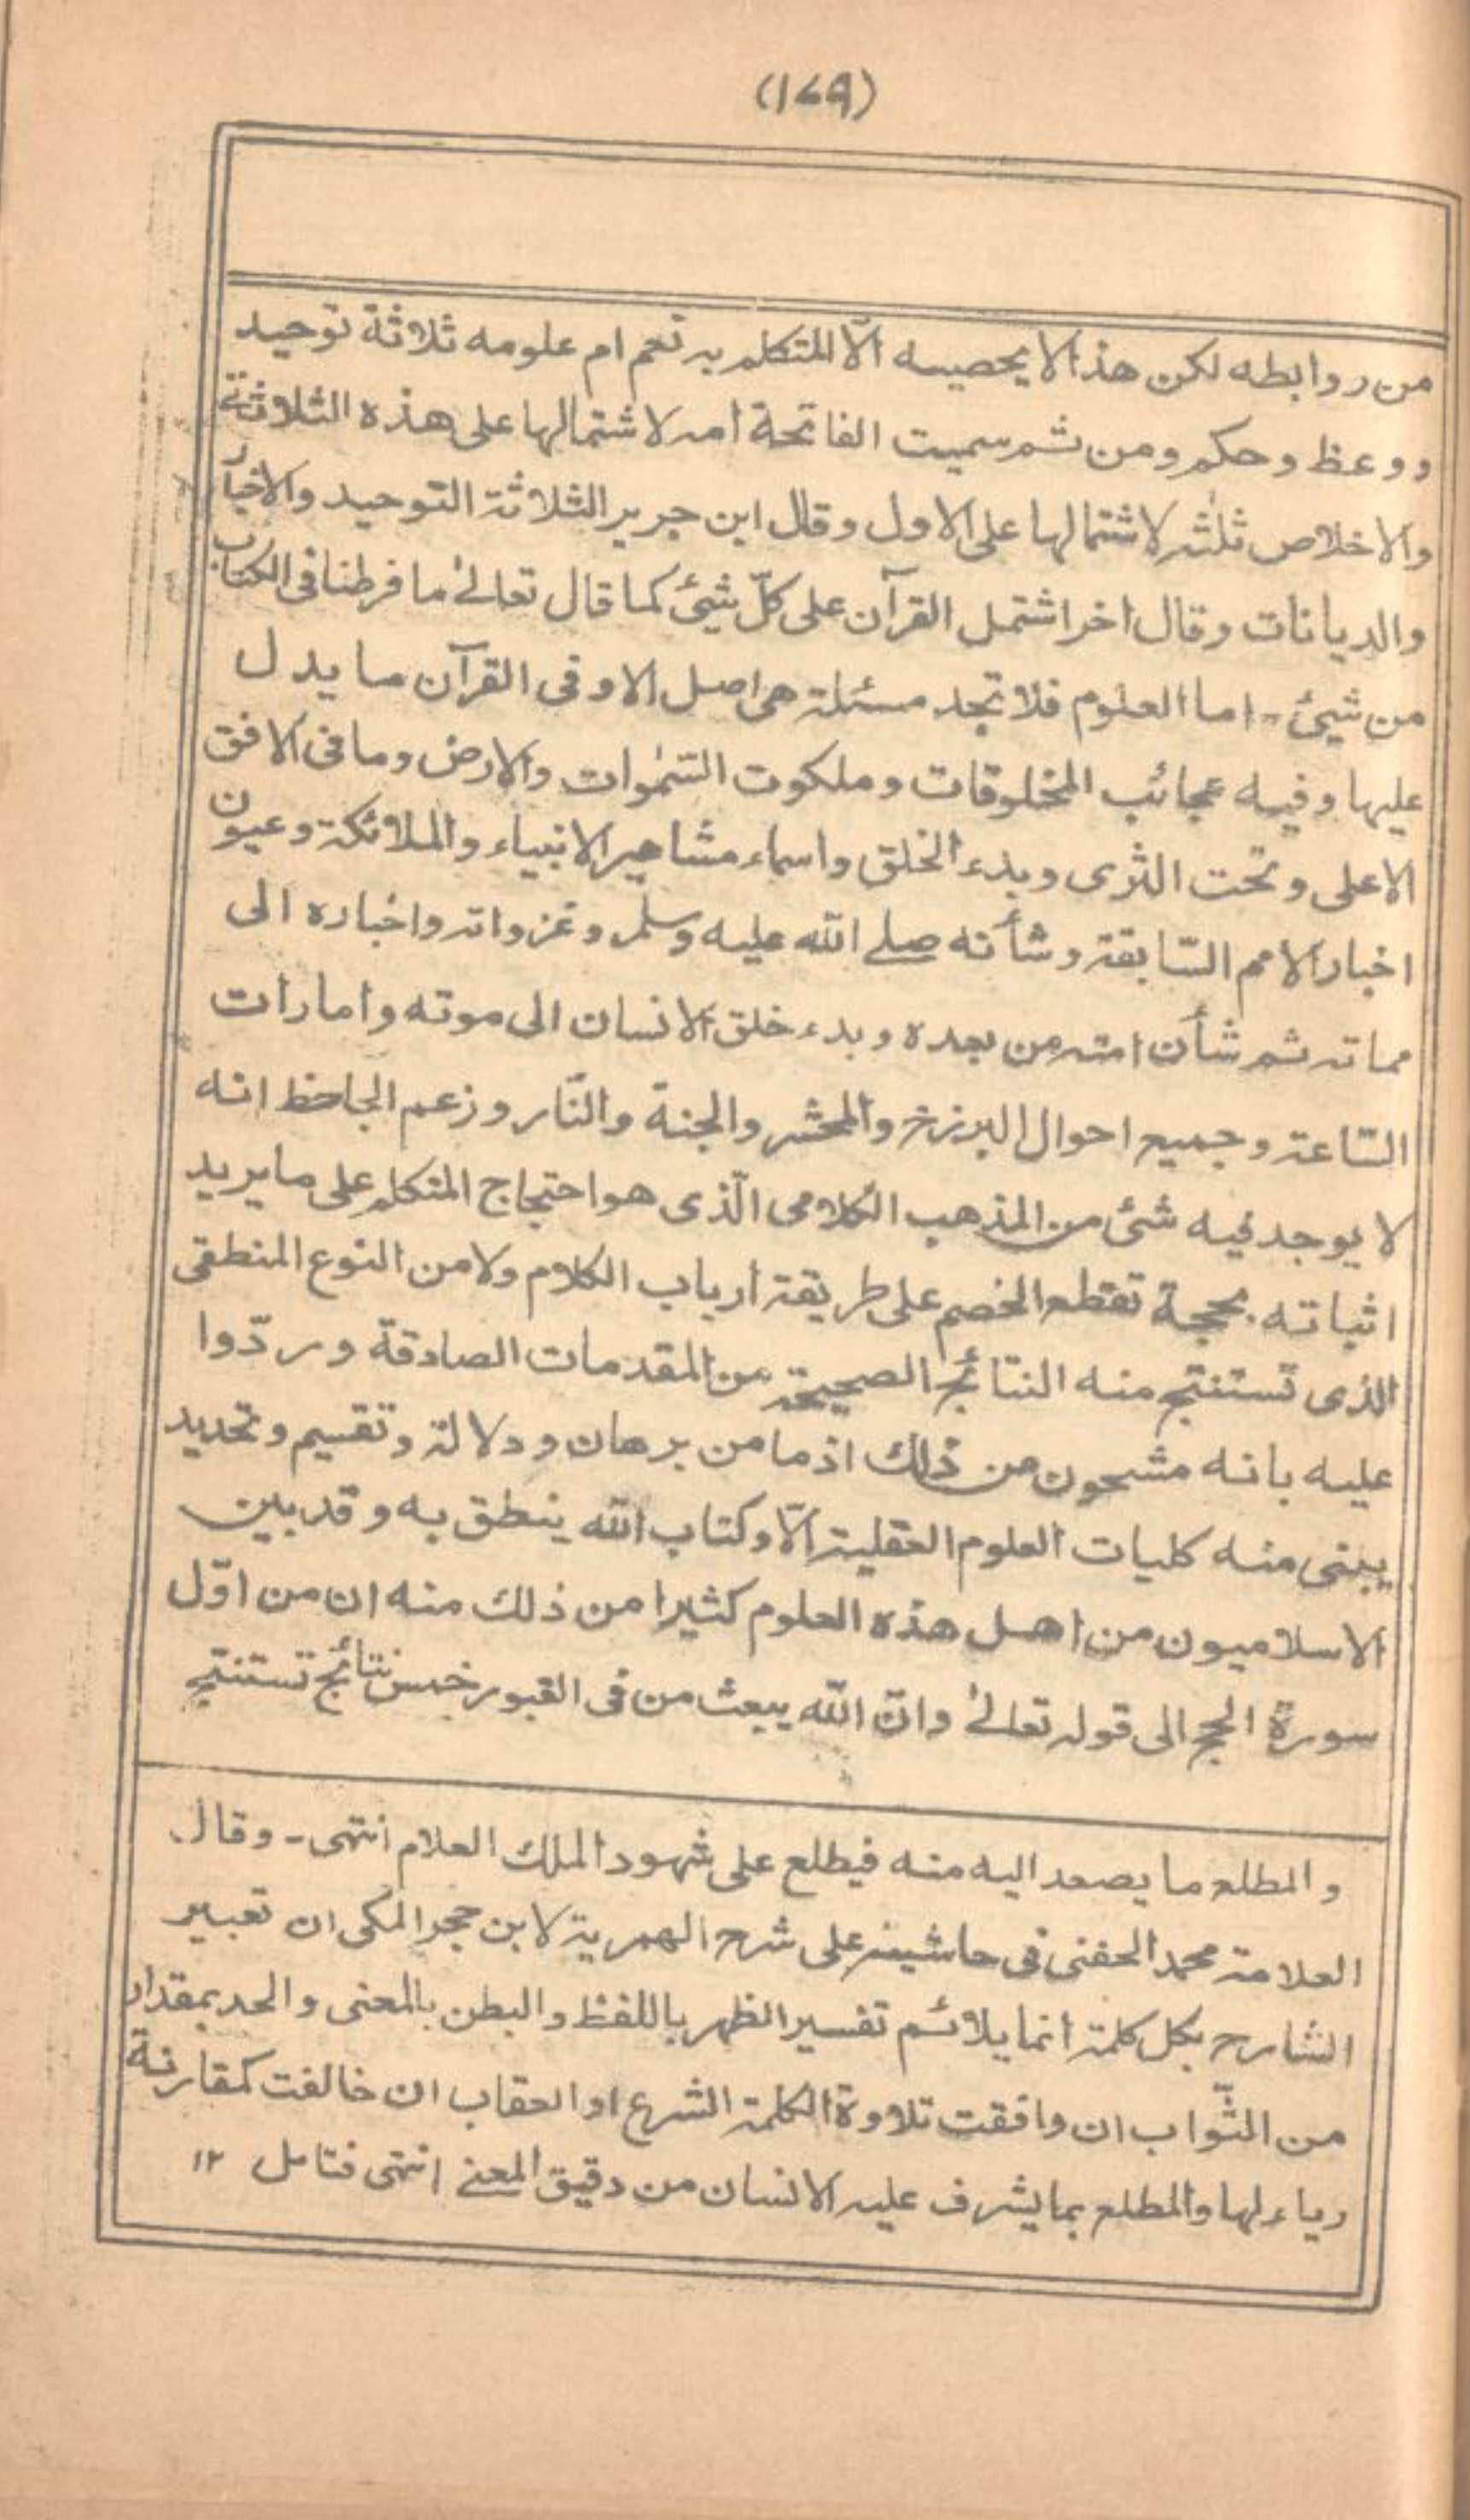 (١٧٩)
من روابطه لكن هذا لا يحصيه الّا المتكلم به نعم ام علومه ثلاثة توحيد
ووعظ وحكم ومن ثم سميت الفاتحة امه لاشتمالها على هذه الثلاثة
والاخلاص ثلثه لاشتمالها على الاول وقال ابن جرير الثلاثة التوحيد والاخبار
والديانات وقال اخر اشتمل القرآن على كلّ شيئ كما قال تعالىٰ ما فرطنا فى الكتاب
من شيئ - اما العلوم فلا تجد مسئلة هى اصل الا وفى القرآن ما يدل
عليها وفيه عجائب المخلوقات وملكوت السّمٰوات والارض وما فى الافق
الاعلى وتحت الثرى وبدء الخلق واسماء مشاهير الانبياء والملائكة وعيون
اخبار الامم السّابقة وشأنه صلے الله عليه وسلم وغزواته واخباره الى
مماته ثم شأن امته من بعده وبدء خلق الانسان الى موته وامارات
السّاعة وجميع احوال البرزخ والمحشر والجنة والنّار وزعم الجاحظ انه
لا يوجد فيه شئ من المذهب الكلامى الّذى هو احتجاج المتكلم على ما يريد
اثباته بحجة تقطع الخصم على طريقة ارباب الكلام ولا من النوع المنطقى
الذى تستنتج منه النتائج الصحيحة من المقدمات الصادقة وردّوا
عليه بانه مشحون من ذلك اذ ما من برهان ودلالة وتقسيم وتحديد
يبنى منه كليات العلوم العقلية الّا وكتاب الله ينطق به وقد بين
الاسلاميون من اهل هذه العلوم كثيرا من ذلك منه ان من اوّل
سورة الحج الى قوله تعالىٰ وانّ الله يبعث من فى القبور خمس نتائج تستنتج
والمطلع ما يصعد اليه منه فيطلع على شهود الملك العلام انتهى - وقال
العلامة محمد الحفنى فى حاشيته على شرح الهمزية لابن حجر المكى ان تعبير
الشارح بكل كلمة انما يلائم تفسير الظهر باللفظ والبطن بالمعنى والحد بمقدار
من الثّواب ان وافقت تلاوة الكلمة الشرع او العقاب ان خالفت كمقارنة
رياء لها والمطلع بما يشرف عليه الانسان من دقيق المعنے انتهى فتامل ١٢